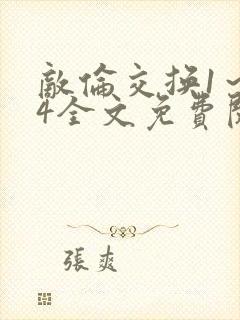 敵倫交换1～
4全文免費閱
張爽